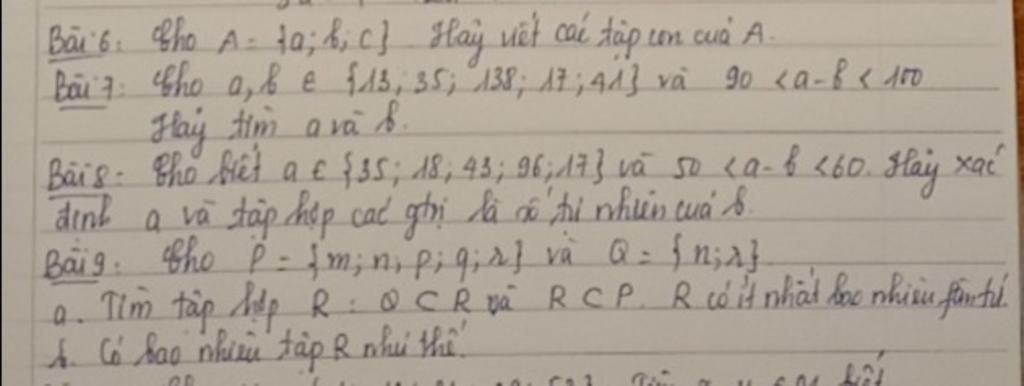 Bài 6: Cho A = {a; b; c} Hãy viết các tập con của A.
Bài 7: Cho a, b ∈ {13; 35; 138; 17; 41} và 90 < a - b < 100
Hãy tìm a và b.
Bài 8: Cho biết a ∈ {35; 18; 43; 96; 17} và 50 < a - b < 60. Hãy xác
định a và tập hợp các gtrị là số tự nhiên của b.
Bài 9: Cho P = {m; n; p; q; r} và Q = {n; r}
a. Tìm tập hợp R: Q ⊂ R và R ⊂ P. R có ít nhất bao nhiêu fần tử.
b. Có bao nhiêu tập R như thế.